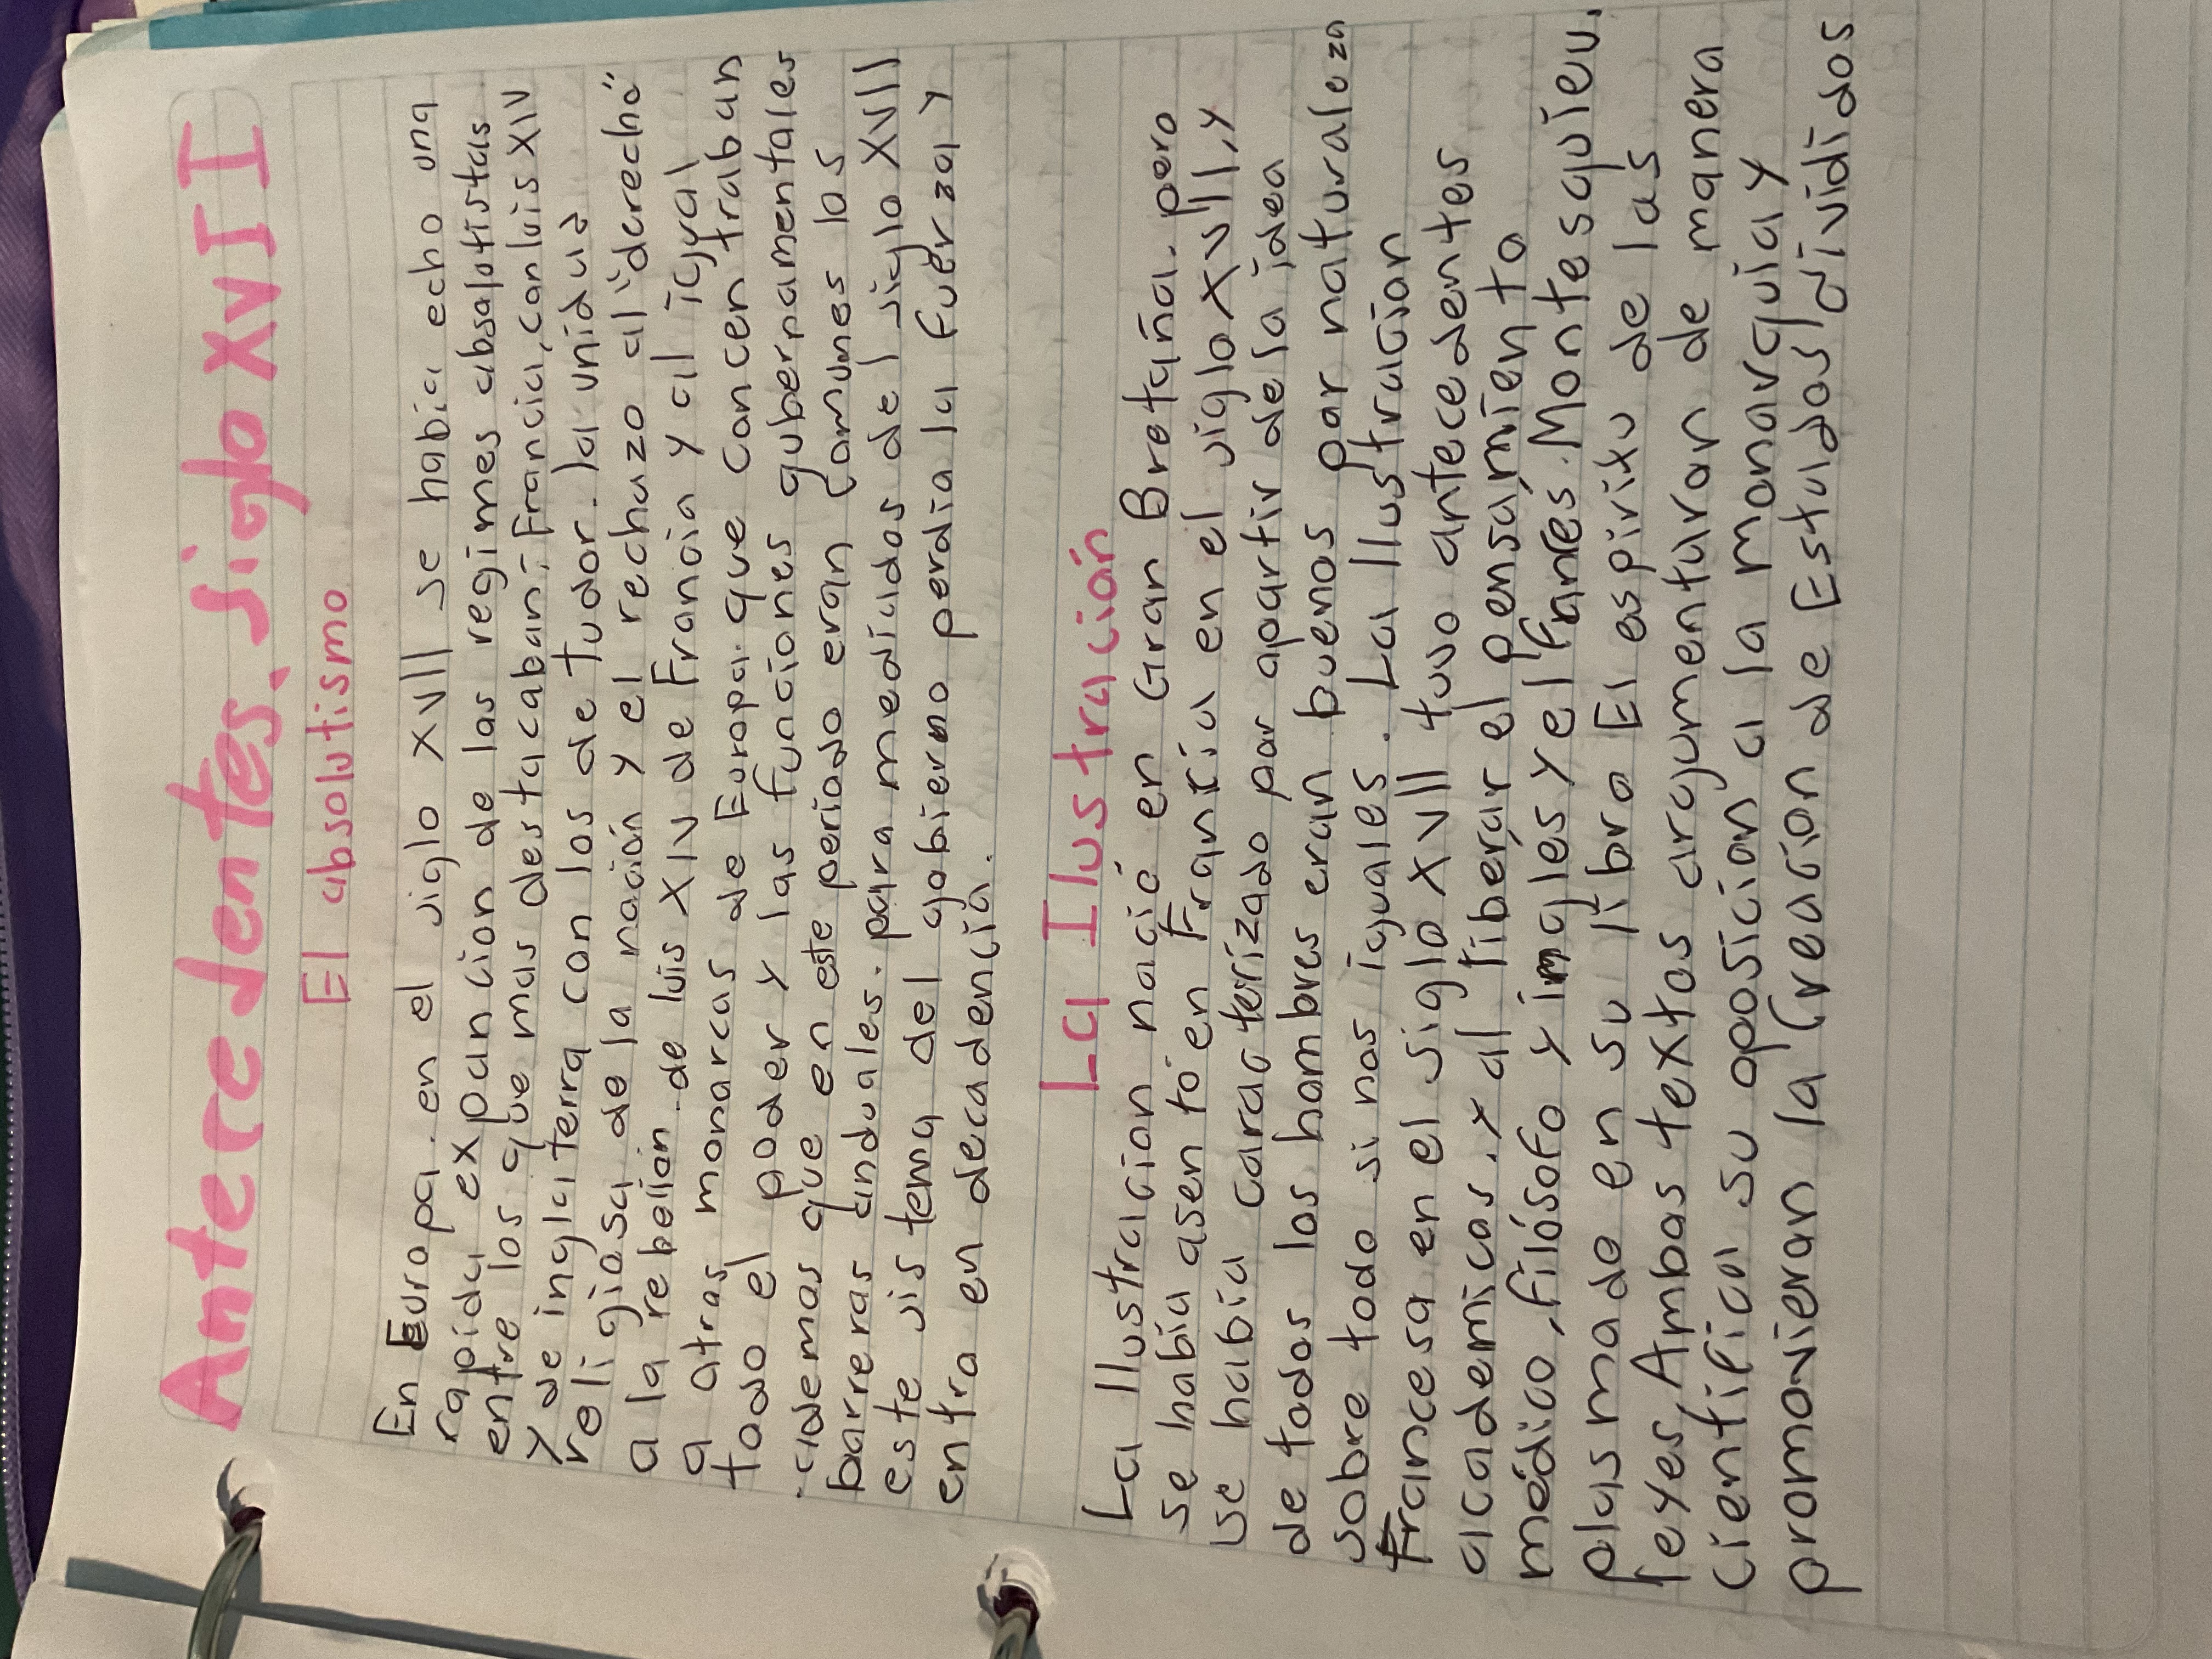 Antecedentes. Siglo XVII
El absolutismo
En Europa. en el siglo XVII se habia echo una
rapida expancion de las regimes absolutistas
entre los que mas destacaban: Francia, con luis XIV
y de inglaterra con los de tudor. la unidad
religiosa de la nación y el rechazo al "derecho"
a la rebelión. de luis XIV de Francia y al igual
a otras monarcas de Europa. que concentraban
todo el poder y las funciones gubernamentales
. ademas que en este periodo eran comunes las
barreras anduales. para mediados del siglo XVII
este sistema del gobierno perdia la fuerza y
entra en decadencia.
La Ilustración
La Ilustracion nació en Gran Bretaña. pero
se habia asentó en Francia en el siglo XVII, y
se habia caracterizado por apartir de la idea
de todos los hombres eran buenos por naturaleza
sobre todo si nos iguales. La Ilustracion
Francesa en el siglo XVII tuvo antecedentes
academicos. y al liberar el pensamiento
médico, filósofo y inglés y el franés. Montesquieu.
plasmade en su libro El espiritu de las
leyes, Ambas textos argumentaron de manera
cientifica su oposicion a la monarquia y
promovieran la Creacion de Estados divididos